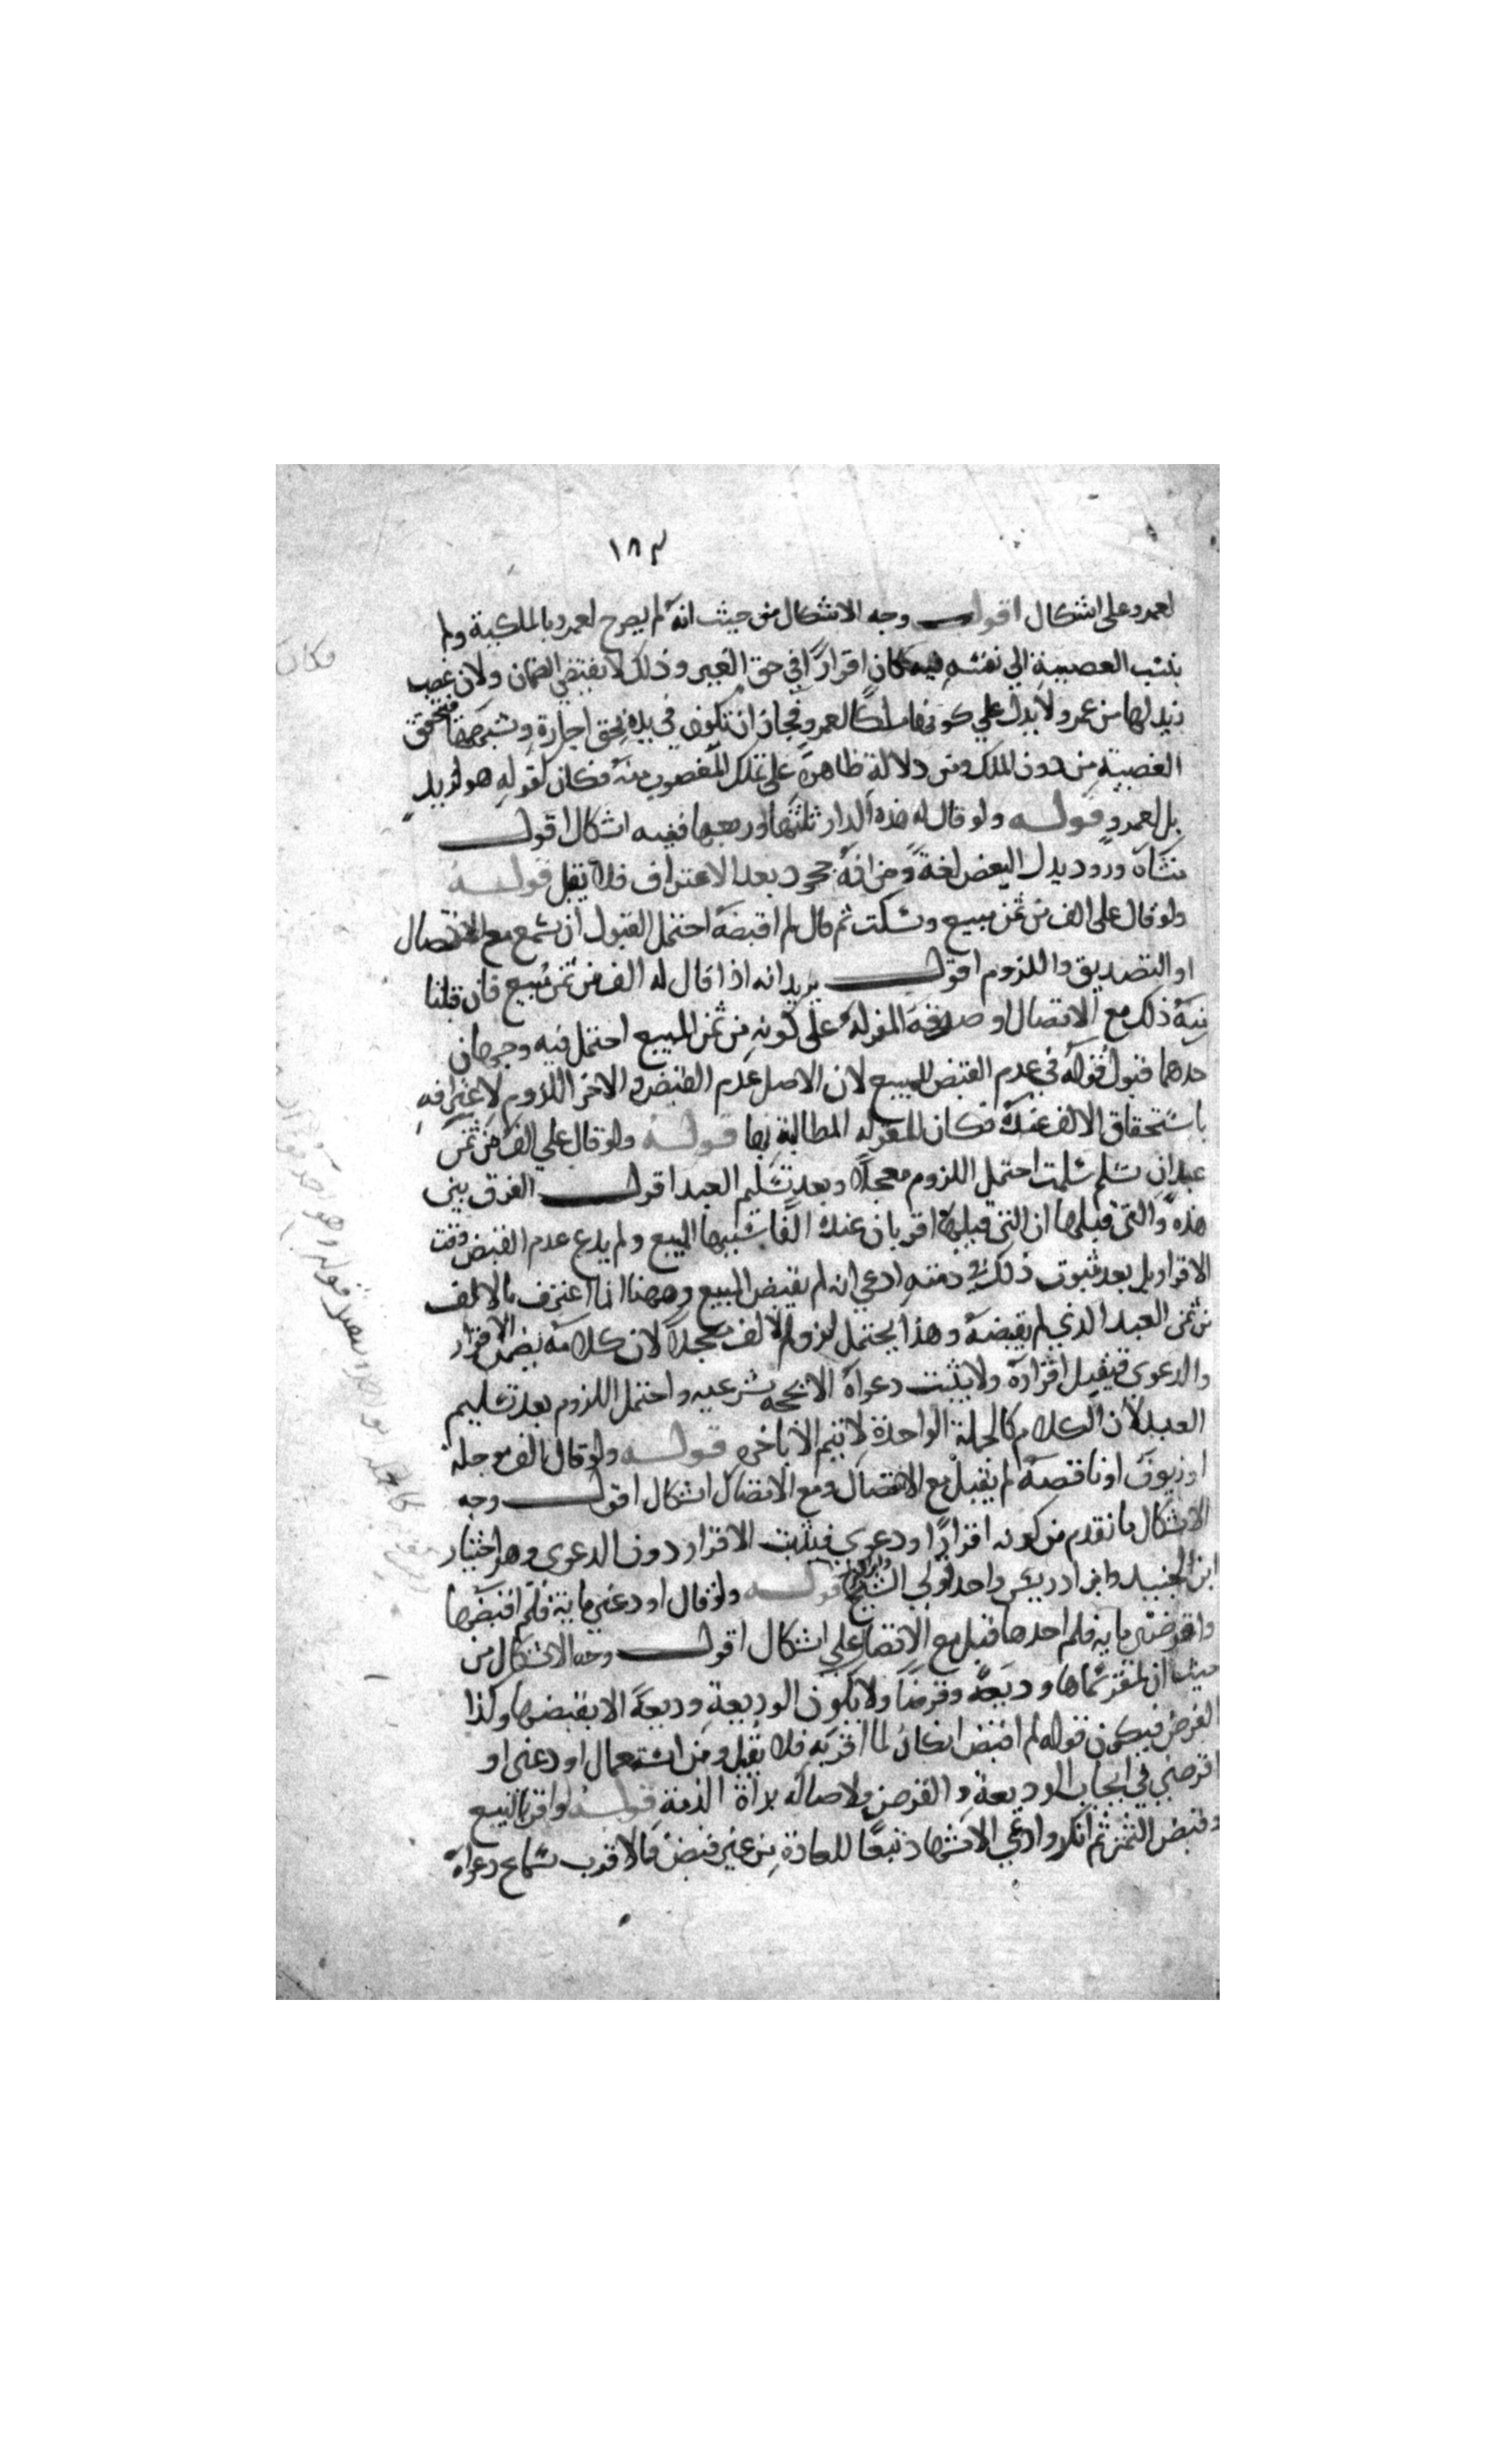 ١٨٣
لعمرو على اشكال اقول وجه الاشكال من حيث انه لم يصرح لعمرو بالملكية ولم
ينسب الغصبية الي نفسه فكان اقرارًا في حق الغير وذلك لا يقتضي الضمان ولان غصب
زيد لها من عمرو لا يدل علي كونها ملكًا لعمرو فجاز ان تكون في يده بحق اجارة وشبهها فيتحقق
الغصبية من دون الملك ومن دلالة ظاهرة علي تملك المغصوب منه فكان كقوله هو لزيد
بل لعمرو قوله ولو قال له هذه الدار ثلثها او ربعها ففيه اشكال اقول
منشاه ورود بدل البعض لغة ومن انه جحود بعد الاعتراف فلا يقبل قوله
ولو قال على الف من ثمن مبيع وسكت ثم قال لم اقبضه احتمل القبول ان سمع مع الاتصال
او التصديق واللزوم اقول يريد انه اذا قال له الف من ثمن مبيع فان قلنا
ذلك مع الاتصال او صدقه المقر له على كونه من ثمن المبيع احتمل فيه وجهان
حدهما قبول قوله في عدم القبض للمبيع لان الاصل عدم القبض والاخر اللزوم لاعترافه
باستحقاق الالف عنده فكان للمقر له المطالبة بها قوله ولو قال علي الف من ثمن
عبد ان سلم سلمت احتمل اللزوم معجلا وبعد تسليم العبد اقول الفرق بين
هذه والتي قبلها ان التي قبلها اقر بان عنده الفا سببها المبيع ولم يدع عدم القبض وقت
الاقرار بل بعد ثبوت ذلك في ذمته ادعي انه لم يقبض المبيع وههنا انما اعترف بالالف
من ثمن العبد الذي لم يقبضه وهذا يحتمل لزوم الالف معجلا لان كلامه يضمن الاقرار
والدعوى فيقبل اقراره ولا يثبت دعواه الا بحجه شرعيه واحتمل اللزوم بعد تسليم
العبد لان الكلام كالجملة الواحدة لا يتم الا باخره قوله ولو قال الف موجلة
او زيوف او ناقصة لم يقبل مع الانفصال ومع الاتصال اشكال اقول وجه
الاشكال ما تقدم من كونه اقرارًا ودعوي فيثبت الاقرار دون الدعوى وهو اختيار
ابن الجنيد وابن ادريس واحد قولي الشيخ قوله ولو قال اودعني ماية فلم اقبضها
واقرضني ماية فلم اخذها قبل مع الاتصال علي اشكال اقول وجه الاشكال من
حيث ان المقر سماها وديعة وقرضًا ولا تكون الوديعة وديعة الا بقبضها وكذا
القرض فيكون قوله لم اقبض انكارًا لما اقر به فلا يقبل ومن استعمال اودعني او
اقرضني في ايجاب الوديعة والقرض ولاصالة براة الذمة قوله لو اقر بالبيع
وقبض الثمن ثم انكر وادعي الاشهاد تبعًا للعادة من غير قبض فالاقرب سماع دعواه
فكان